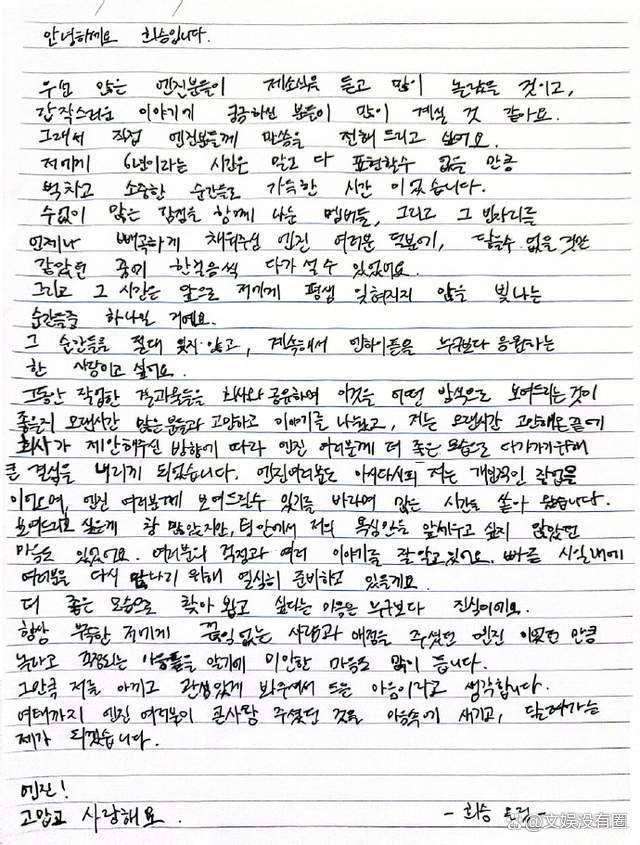 안녕하세요 희승입니다.
우선 많은 엔진분들이 제소식을 듣고 많이 놀랐을 것이고,
갑작스러운 이야기에 궁금하신 분들이 많이 계실 것 같아요.
그래서 직접 엔진분들께 말씀을 전해 드리고 싶어요.
저에게 6년이라는 시간은 말로 다 표현할수 없을 만큼
벅차고 소중한 순간들로 가득한 시간 이었습니다.
수없이 많은 감정을 함께 나눈 멤버들, 그리고 그 빈자리를
언제나 빼곡하게 채워주신 엔진 여러분 덕분에, 닿을수 없을 것만
같았던 꿈에 한걸음씩 다가 설 수 있었어요.
그리고 그 시간은 앞으로 저에게 평생 잊혀지지 않을 빛나는
순간들중 하나일 거예요.
그 순간들을 절대 잊지 않고, 계속해서 엔하이픈을 누구보다 응원하는
한 사람이고 싶어요.
그동안 작업한 결과물들을 회사와 공유하며 이것을 어떤 방식으로 보여드리는것이
좋을지 오랜시간 많은분들과 고민하고 이야기를 나눴고, 저는 오랜시간 고민해온 끝에
회사가 제안해주신 방향에 따라 엔진 여러분께 더 좋은 모습으로 다가가기위해
큰 결심을 내리게 되었습니다. 엔진여러분도 아시다시피 저는 개인적인 작업을
이어오며, 엔진 여러분께 보여드릴수 있기를 바라며 많은 시간을 쏟아 왔습니다.
보여드리고 싶은게 참 많았지만, 팀 안에서 저의 욕심만을 앞세우고 싶지 않았던
마음도 있었어요. 여러분의 걱정과 여러 이야기를 잘 알고 있어요. 빠른 시일내에
여러분을 다시 만나기 위해 열심히 준비하고 있을게요.
더 좋은 모습으로 찾아 뵙고 싶다는 마음은 누구보다 진심이에요.
항상 부족한 저에게 끊임 없는 사랑과 애정을 주셨던 엔진 이었던 만큼
놀라고 걱정되는 마음들을 알기에 미안한 마음도 많이 듭니다.
그만큼 저를 아끼고 관심있게 봐주셔서 드는 마음이라고 생각합니다.
여태까지 엔진 여러분이 큰사랑 주셨던 것을 마음속에 새기고, 달려가는
제가 되겠습니다.
엔진!
고맙고 사랑해요.
- 희승 드림 -
@文娱没有圈